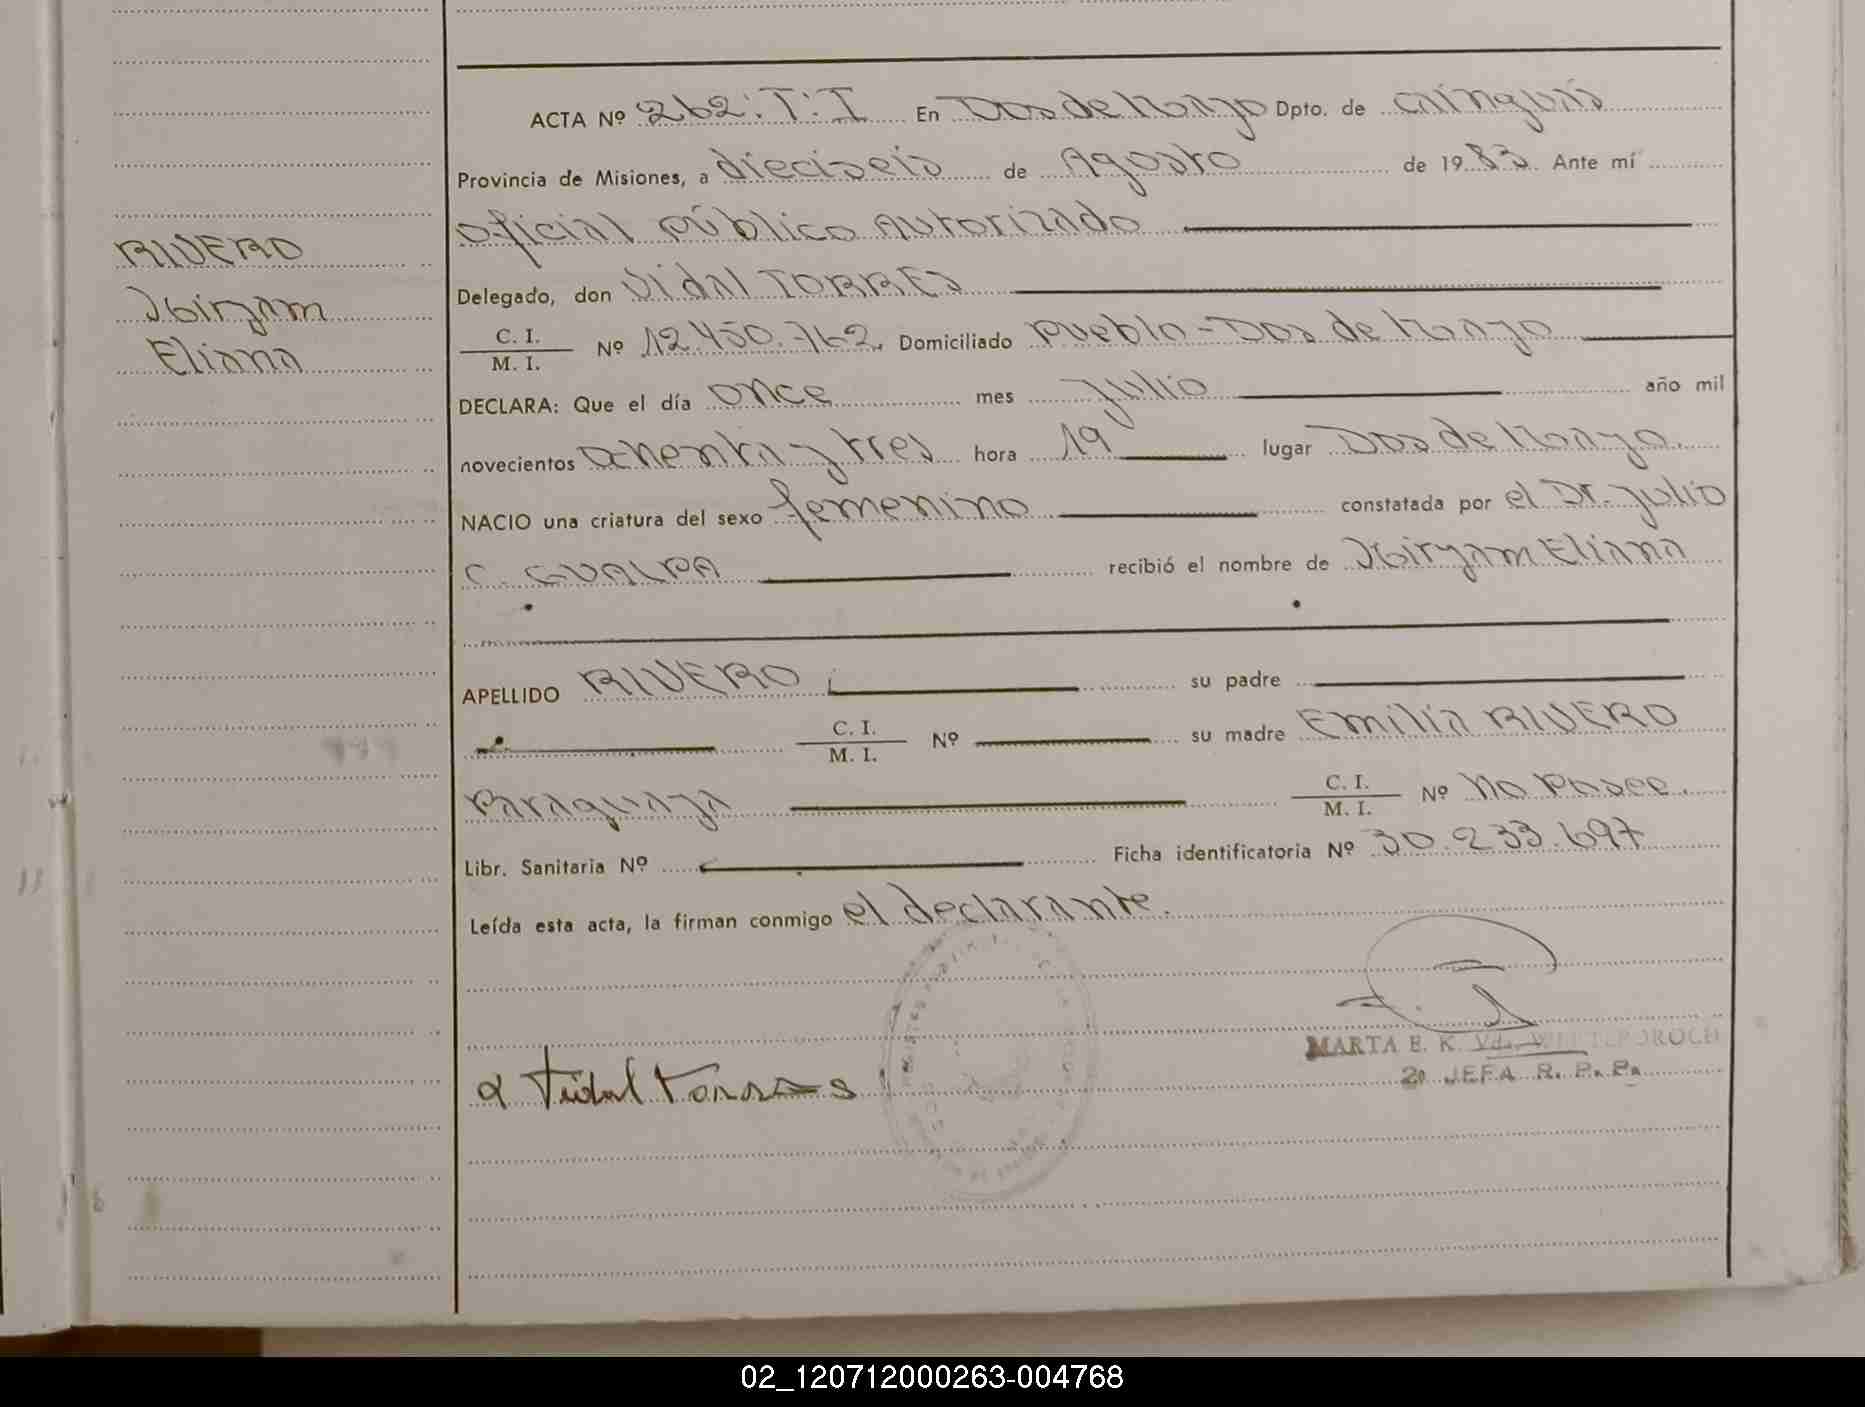 ACTA Nº 262: T: I En Dos de Mayo Dpto. de Cainguás
Provincia de Misiones, a dieciseis de Agosto de 1983. Ante mí
Oficial Público Autorizado
RIVERO
Delegado, don Vidal TORRES
Miryam
C. I.
M. I. Nº 12.450.762, Domiciliado Pueblo - Dos de Mayo
Eliana
DECLARA: Que el día once mes Julio año mil
novecientos ochenta y tres hora 19 lugar Dos de Mayo.
NACIO una criatura del sexo femenino constatada por el Dr. Julio
C. GUALPA recibió el nombre de Miryam Eliana
APELLIDO RIVERO su padre
C. I.
M. I. Nº su madre Emilia RIVERO
Paraguaya C. I.
M. I. Nº No Posee.
Libr. Sanitaria Nº Ficha identificatoria Nº 30.233.697
Leída esta acta, la firman conmigo el declarante.
MARTA E. K. Vda.
Vidal Torres 2a JEFA R. P. Ps
02_120712000263-004768